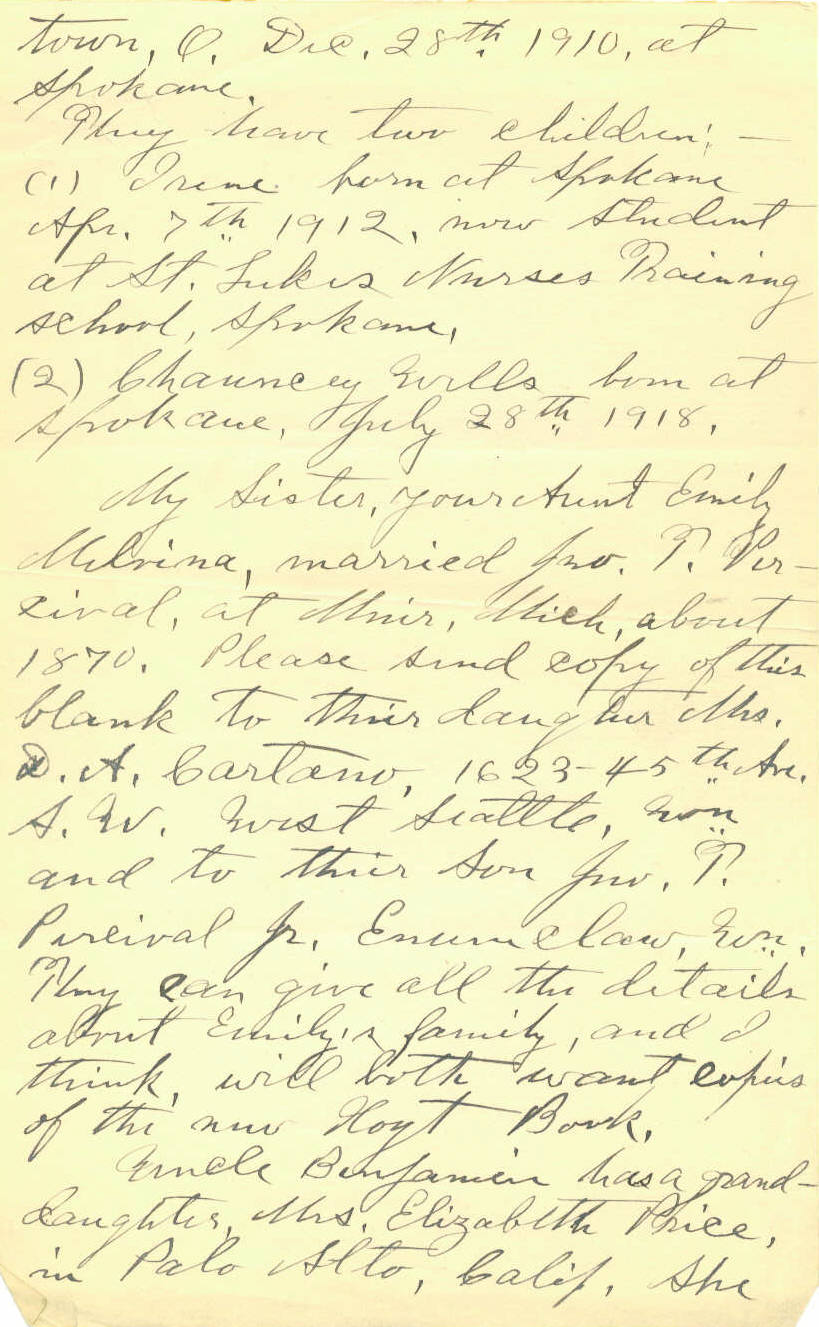 town, O. Dec. 28th 1910, at
Spokane.
They have two children; —
(1) Irene born at Spokane
Apr. 7th 1912, now student
at St. Lukes Nurses Training
school, Spokane.
(2) Chauncey Wells born at
Spokane, July 28th 1918.
My Sister, your Aunt Emily
Melvina, married Jno. T. Per-
cival, at Muir, Mich, about
1870. Please send copy of this
blank to their daughter Mrs.
D. A. Cartano, 1623-45th Ave.
S. W. West Seattle, Wn
and to their Son Jno. T.
Percival Jr. Enumclaw, Wn.
They can give all the details
about Emily's family, and I
think, will both want copies
of the new Hoyt Book.
Uncle Benjamin has a grand-
daughter, Mrs. Elizabeth Price,
in Palo Alto, Calif. She